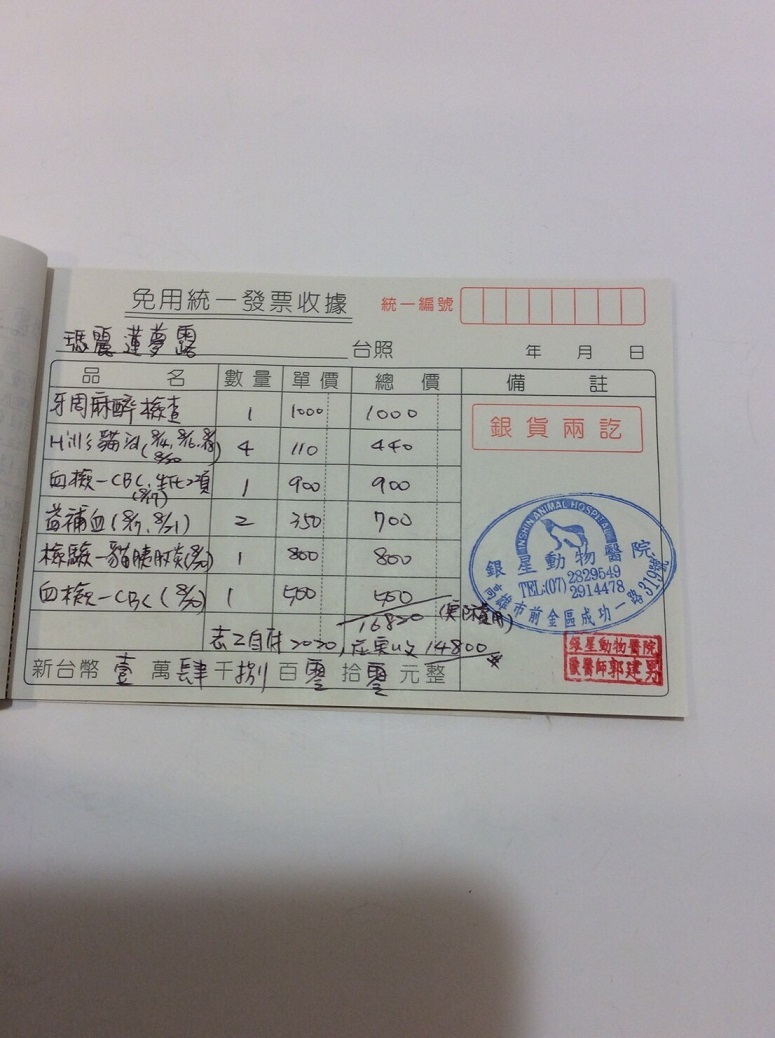 免用統一發票收據 統一編號
瑪麗蓮夢露 台照 年 月 日
品 名 數量 單價 總價 備 註
牙周麻醉檢查 1 1000 1000
Hill's貓 4 110 440
血檢-CBC, 生化2項 (8/17) 1 900 900
益補血(8/17, 8/21) 2 350 700
檢驗-貓胰臟炎 1 800 800
血檢-CBC (8/20) 1 500 500
16820 (實際費用)
志工自付2020, 應實收14800
新台幣壹萬肆千捌百零拾零元整
銀貨兩訖
INSHIN ANIMAL HOSPITAL
銀星動物醫院
TEL:(07) 2829549
2914478
高雄市前金區成功一路319號
銀星動物醫院
獸醫師郭建男